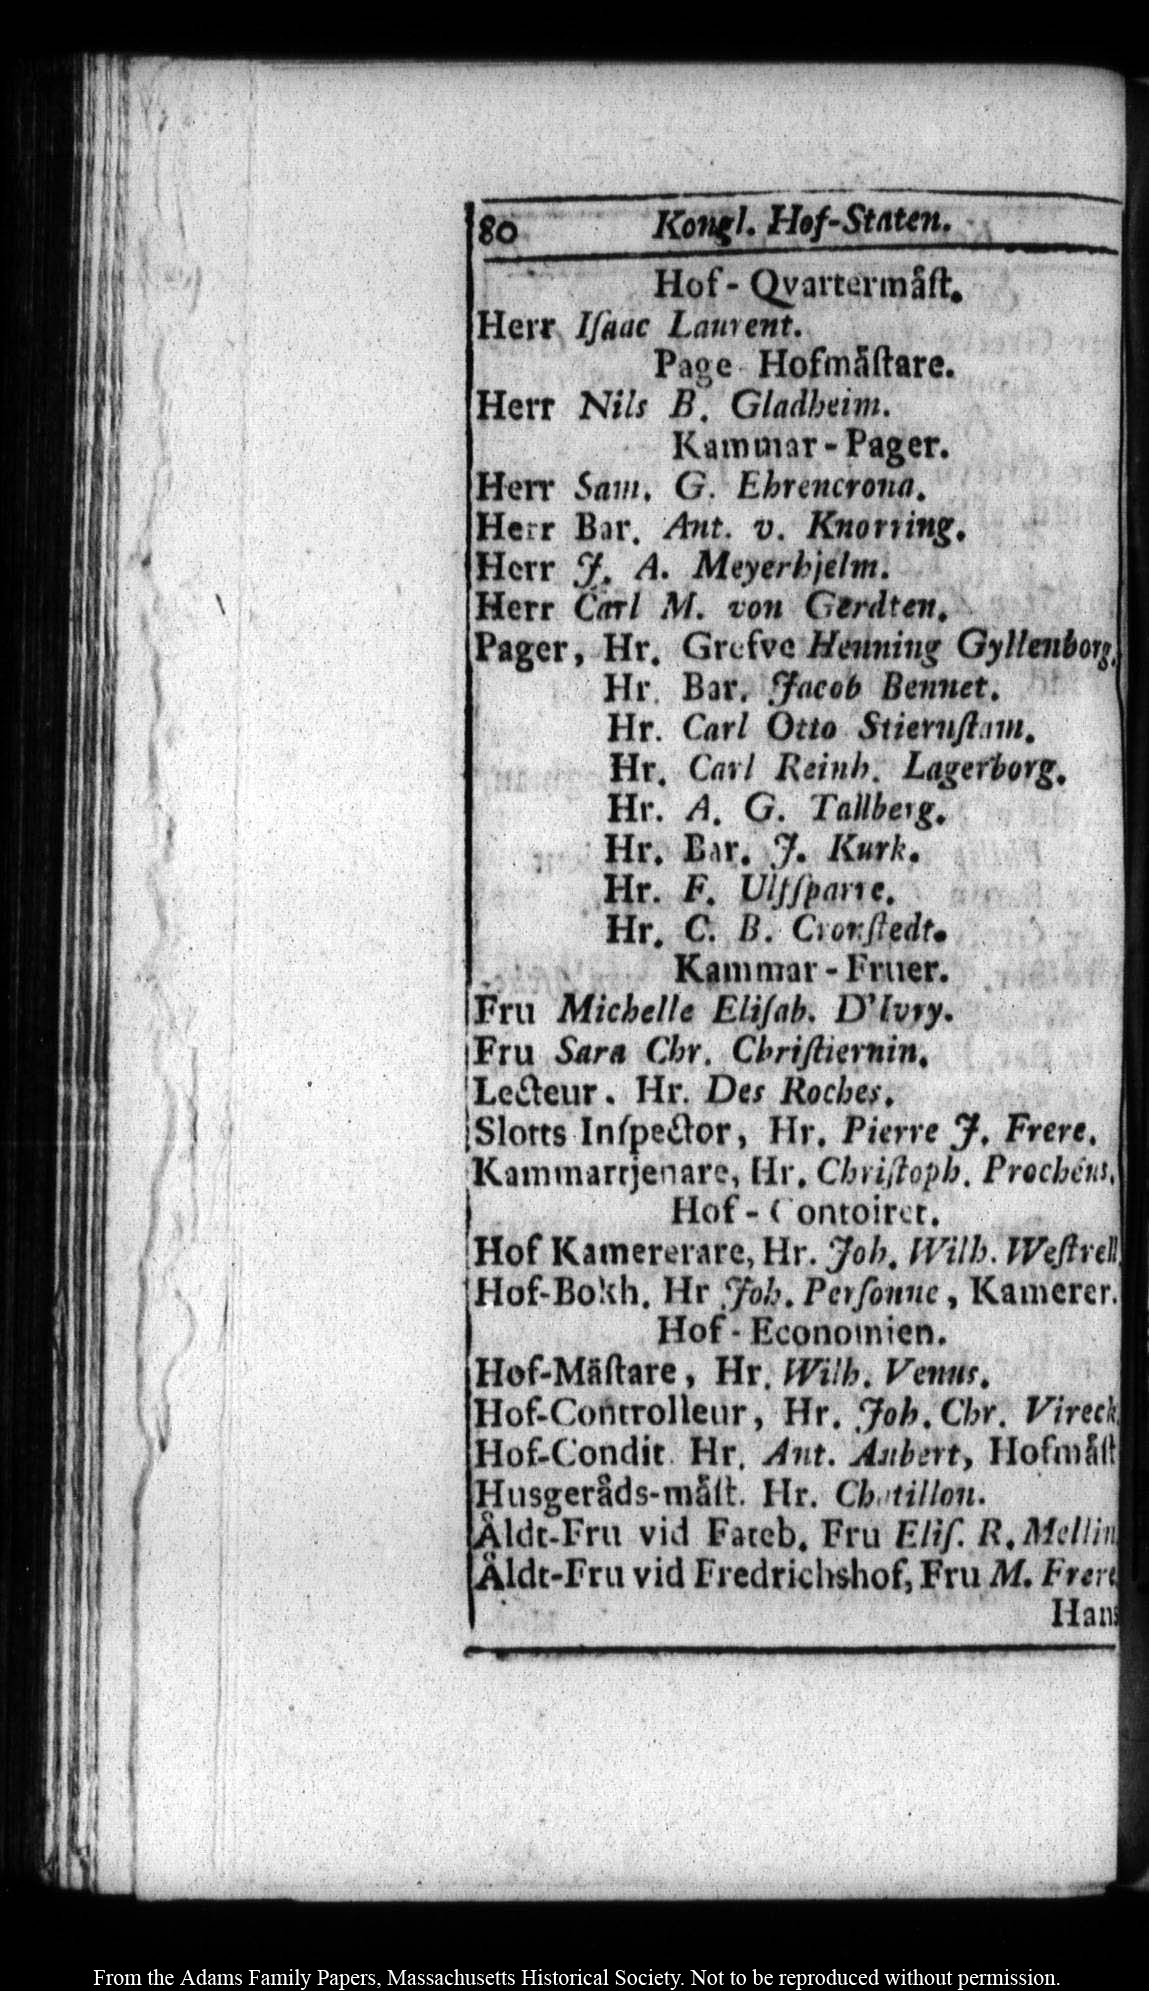 80 Kongl. Hof-Staten.
Hof-Qvartermåſt.
Herr Iſaac Laurent.
Page Hofmåſtare.
Herr Nils B. Gladheim.
Kammar-Pager.
Herr Sam. G. Ehrencrona.
Herr Bar. Ant. v. Knorring.
Herr J. A. Meyerhjelm.
Herr Carl M. von Gerdten.
Pager, Hr. Grefve Henning Gyllenborg.
Hr. Bar. Jacob Bennet.
Hr. Carl Otto Stiernſtam.
Hr. Carl Reinh. Lagerborg.
Hr. A. G. Tallberg.
Hr. Bar. J. Kurk.
Hr. F. Ulfſparre.
Hr. C. B. Cronſtedt.
Kammar-Fruer.
Fru Michelle Eliſab. D'Ivry.
Fru Sara Chr. Chriſtiernin.
Lecteur. Hr. Des Roches.
Slotts Inſpector, Hr. Pierre J. Frere.
Kammartjenare, Hr. Chriſtoph. Prochéus.
Hof-Contoiret.
Hof Kamererare, Hr. Joh. Wilh. Weſtrell
Hof-Bokh. Hr Joh. Perſonne, Kamerer.
Hof-Economien.
Hof-Mäſtare, Hr. Wilh. Venus.
Hof-Controlleur, Hr. Joh. Chr. Vireck
Hof-Condit. Hr. Ant. Aubert, Hofmåſt
Husgeråds-måſt. Hr. Chatillon.
Åldt-Fru vid Fateb. Fru Eliſ. R. Mellin
Åldt-Fru vid Fredrichshof, Fru M. Frere
Hans
From the Adams Family Papers, Massachusetts Historical Society. Not to be reproduced without permission.